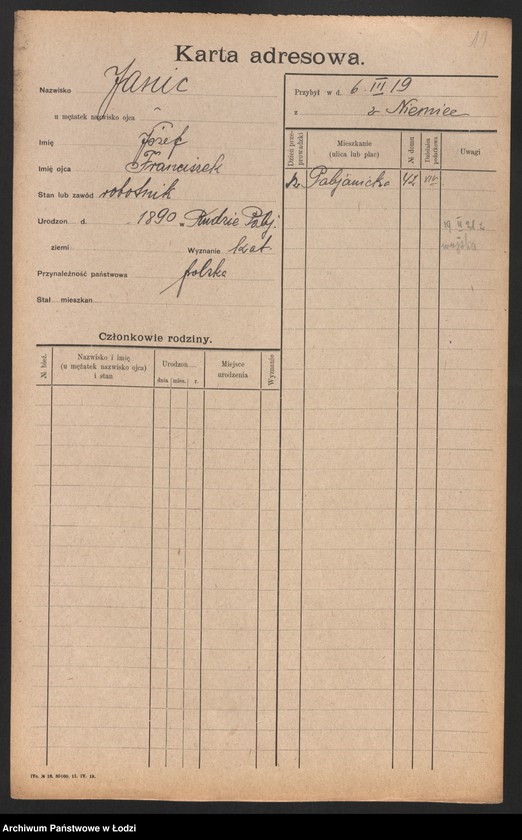 19
Karta adresowa.
Nazwisko Janic
u mężatek nazwisko ojca
Imię Józef
Imię ojca Franciszek
Stan lub zawód robotnik
Urodzon d. 1890 w Rudzie Pabj.
ziemi Wyznanie kat
Przynależność państwowa polska
Stał. mieszkan.
Przybył w d. 6. III 19
z z Niemiec
Dzień przeprowadzki
Mieszkanie (ulica lub plac)
№ domu
Dzielnica podatkowa
Uwagi
Pabjanicka 42 VII
19 II 21 z
wojska
Członkowie rodziny.
№ bież.
Nazwisko i imię (u mężatek nazwisko ojca) i stan
Urodzon
dnia mies. r.
Miejsce urodzenia
Wyznanie
Archiwum Państwowe w Łodzi